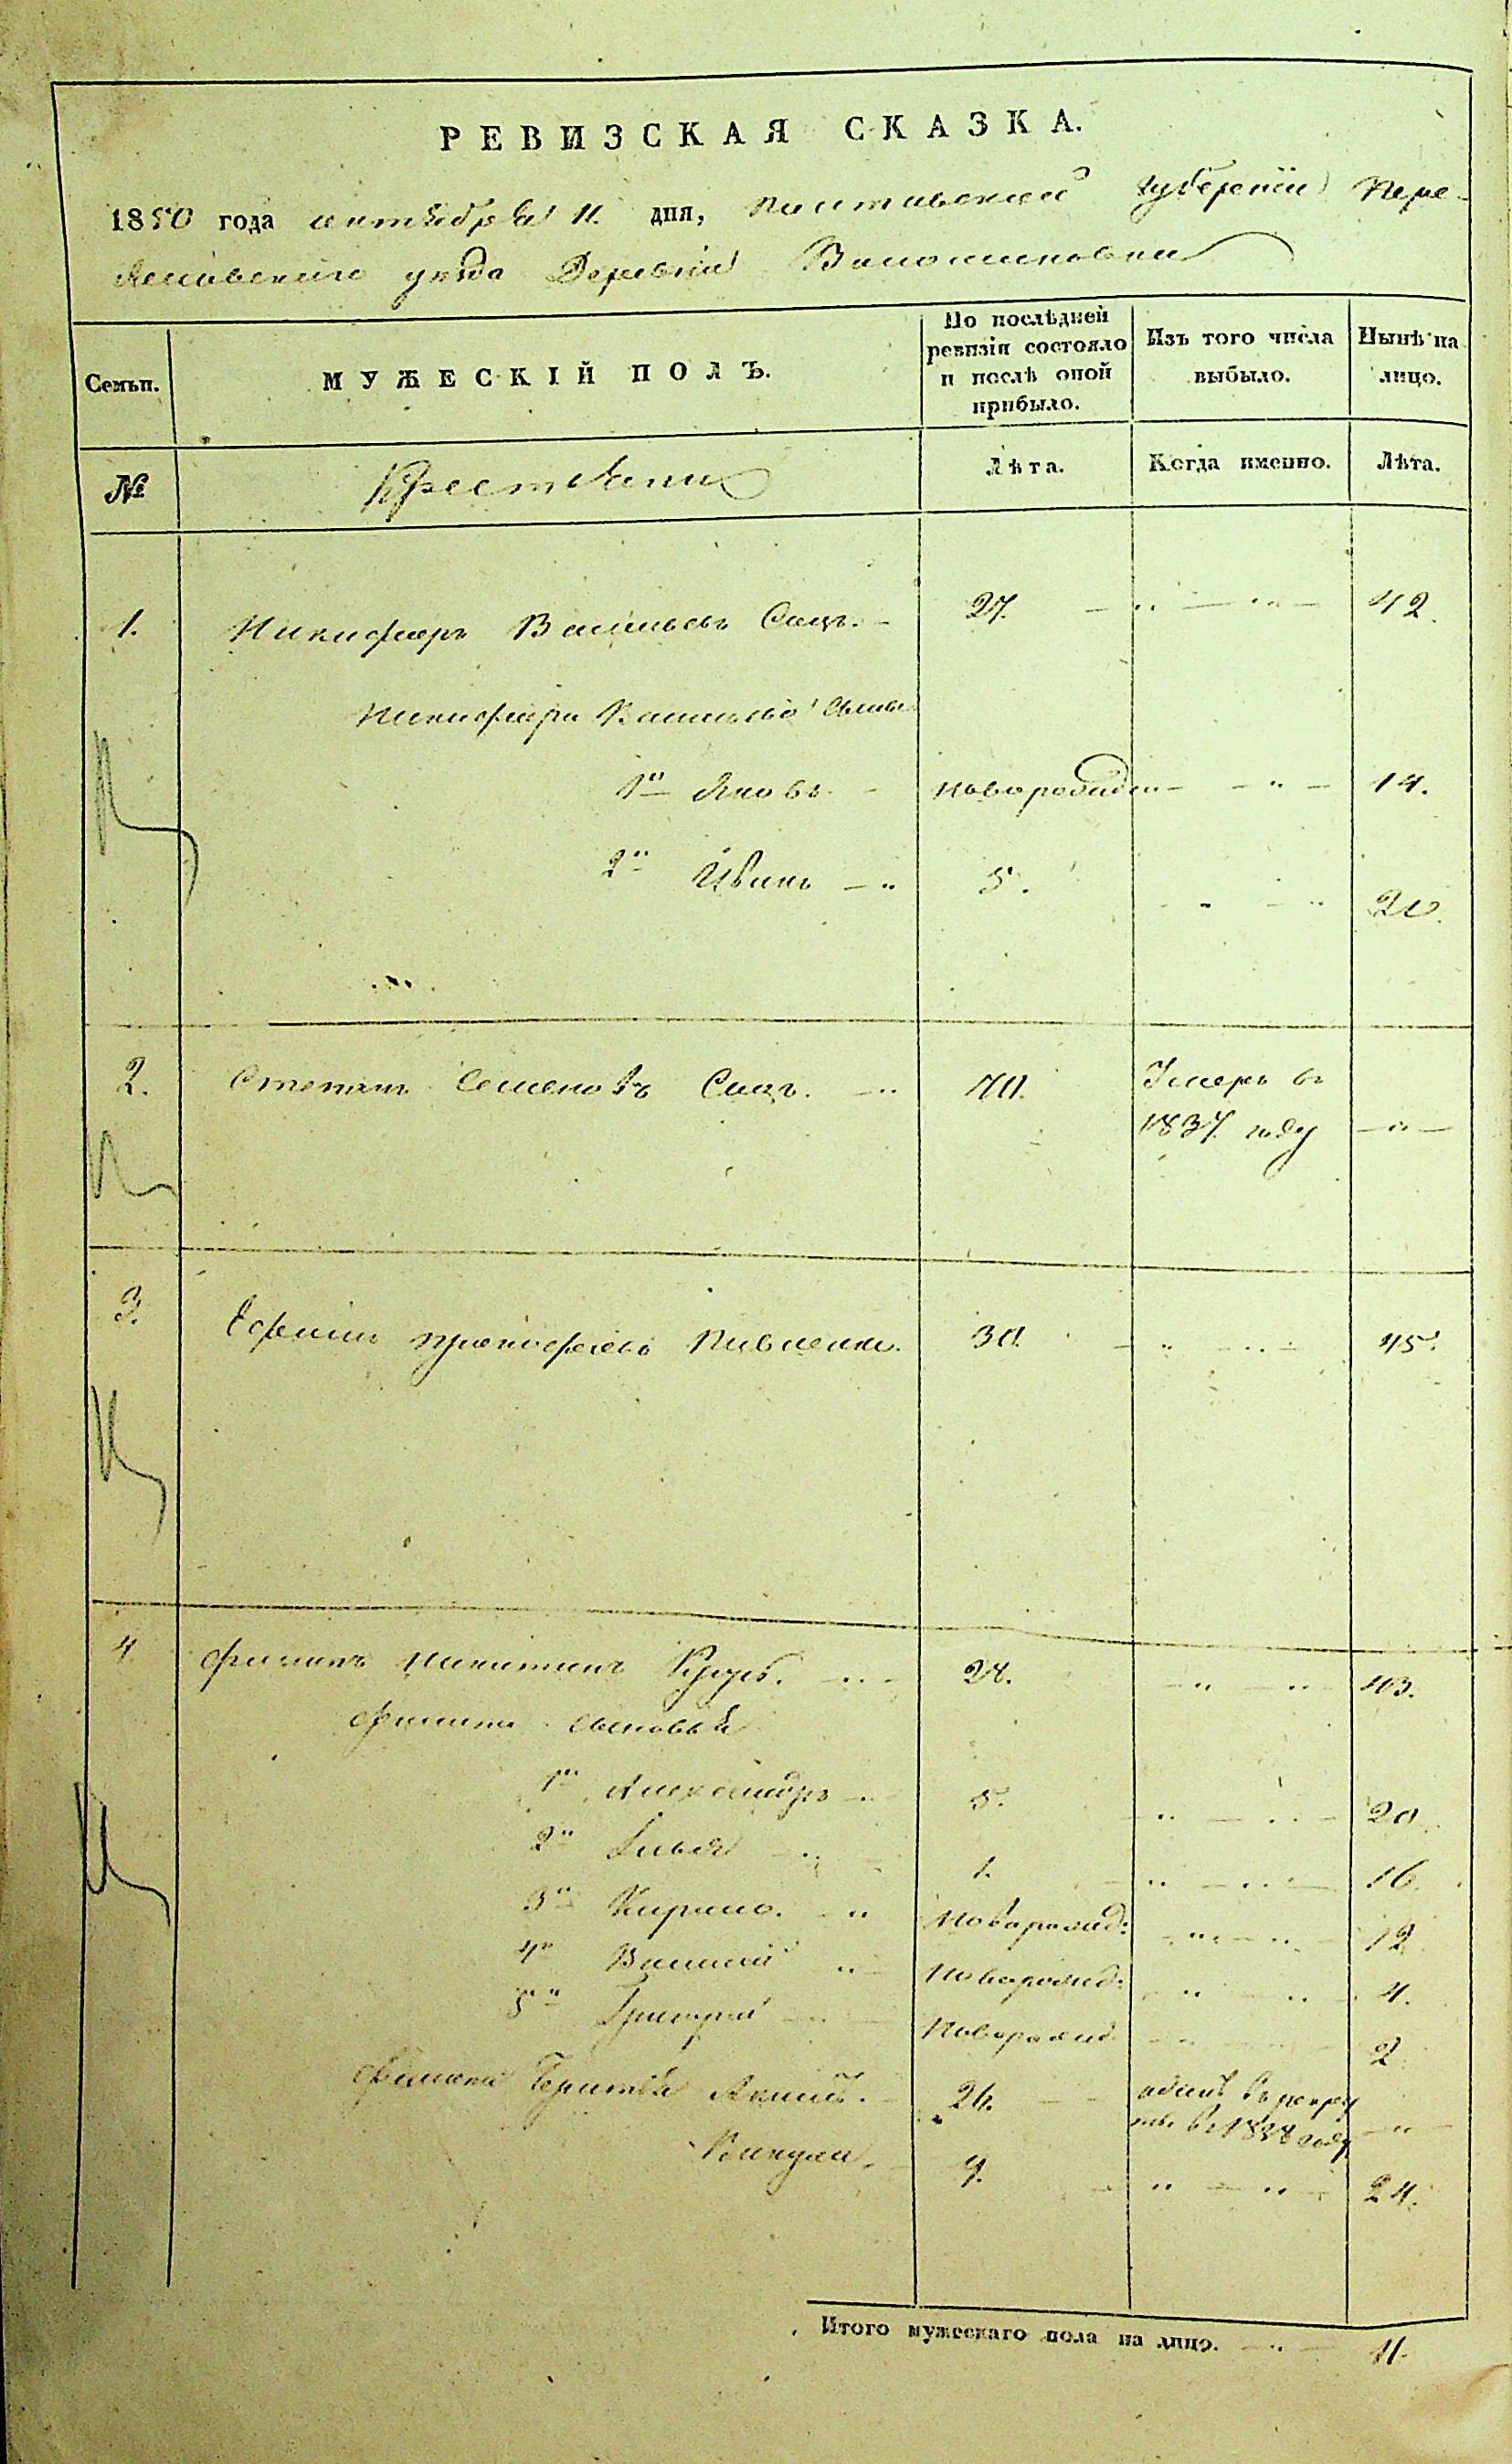 РЕВИЗСКАЯ СКАЗКА.
1850 года октября 11. дня, Полтавской губернии Пере-
яславского уезда Деревни
Семьи.
МУЖЕСКІЙ ПОЛЪ.
По послѣдней ревизіи состояло и послѣ оной прибыло.
Изъ того числа выбыло.
Нынѣ на лицо.
№
Крестьяне
Лѣта.
Когда именно.
Лѣта.
1. Никифоръ Васильевъ Сацъ. 27. 42.
Никифора Васильева сыны
1й Яковъ новорожден 14.
2й Иванъ 5. 20.
2. Степанъ Семеновъ Сацъ. 70. Умеръ въ
1837. году
3. Ефимъ Прокофіевъ 30. 45.
4 Филипъ Никитинъ 28. 43.
Филипа сыновья
1й Александръ 5. 20.
2й Илья 1. 16.
3й Кирило. Новорожд: 12.
4й Василій Новорожд: 4.
5й Григорій Новорожд 2
Филипа братья 26. въ рекру
въ 1838 году
9. 24.
Итого мужескаго пола на лицо. 11.